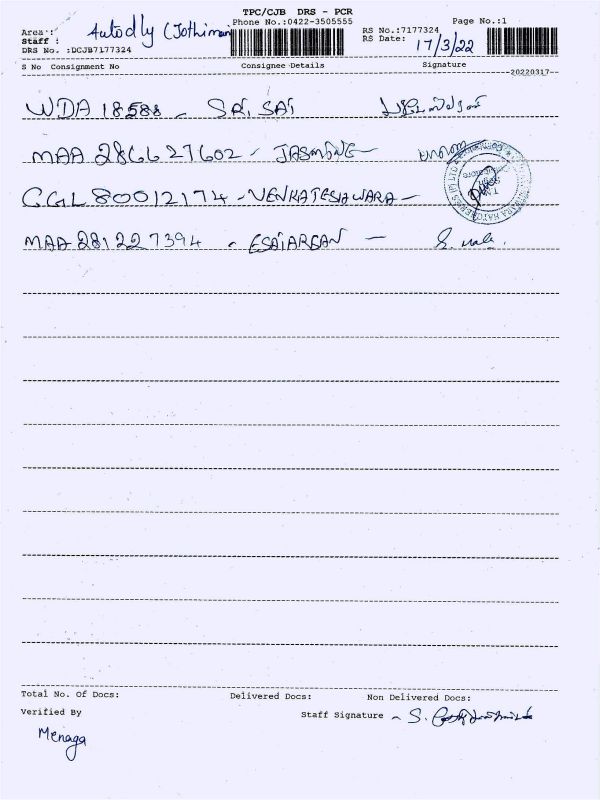 TPC/CJB DRS - PCR
Phone No.:0422-3505555
Page No.:1
Area :
Autodly (Jothimani
RS No.:7177324
Staff :
RS Date: 17/3/22
DRS No. :DCJB7177324
S No Consignment No Consignee Details Signature
--20220317--
WDA 18588 - SRI SAI
MAA 286627602 - JASMINE -
CGL 80012174 - VENKATESHWARA -
MAA 281227394 - ESAIARSAN -
Total No. Of Docs: Delivered Docs: Non Delivered Docs:
Verified By
Staff Signature
Menaga